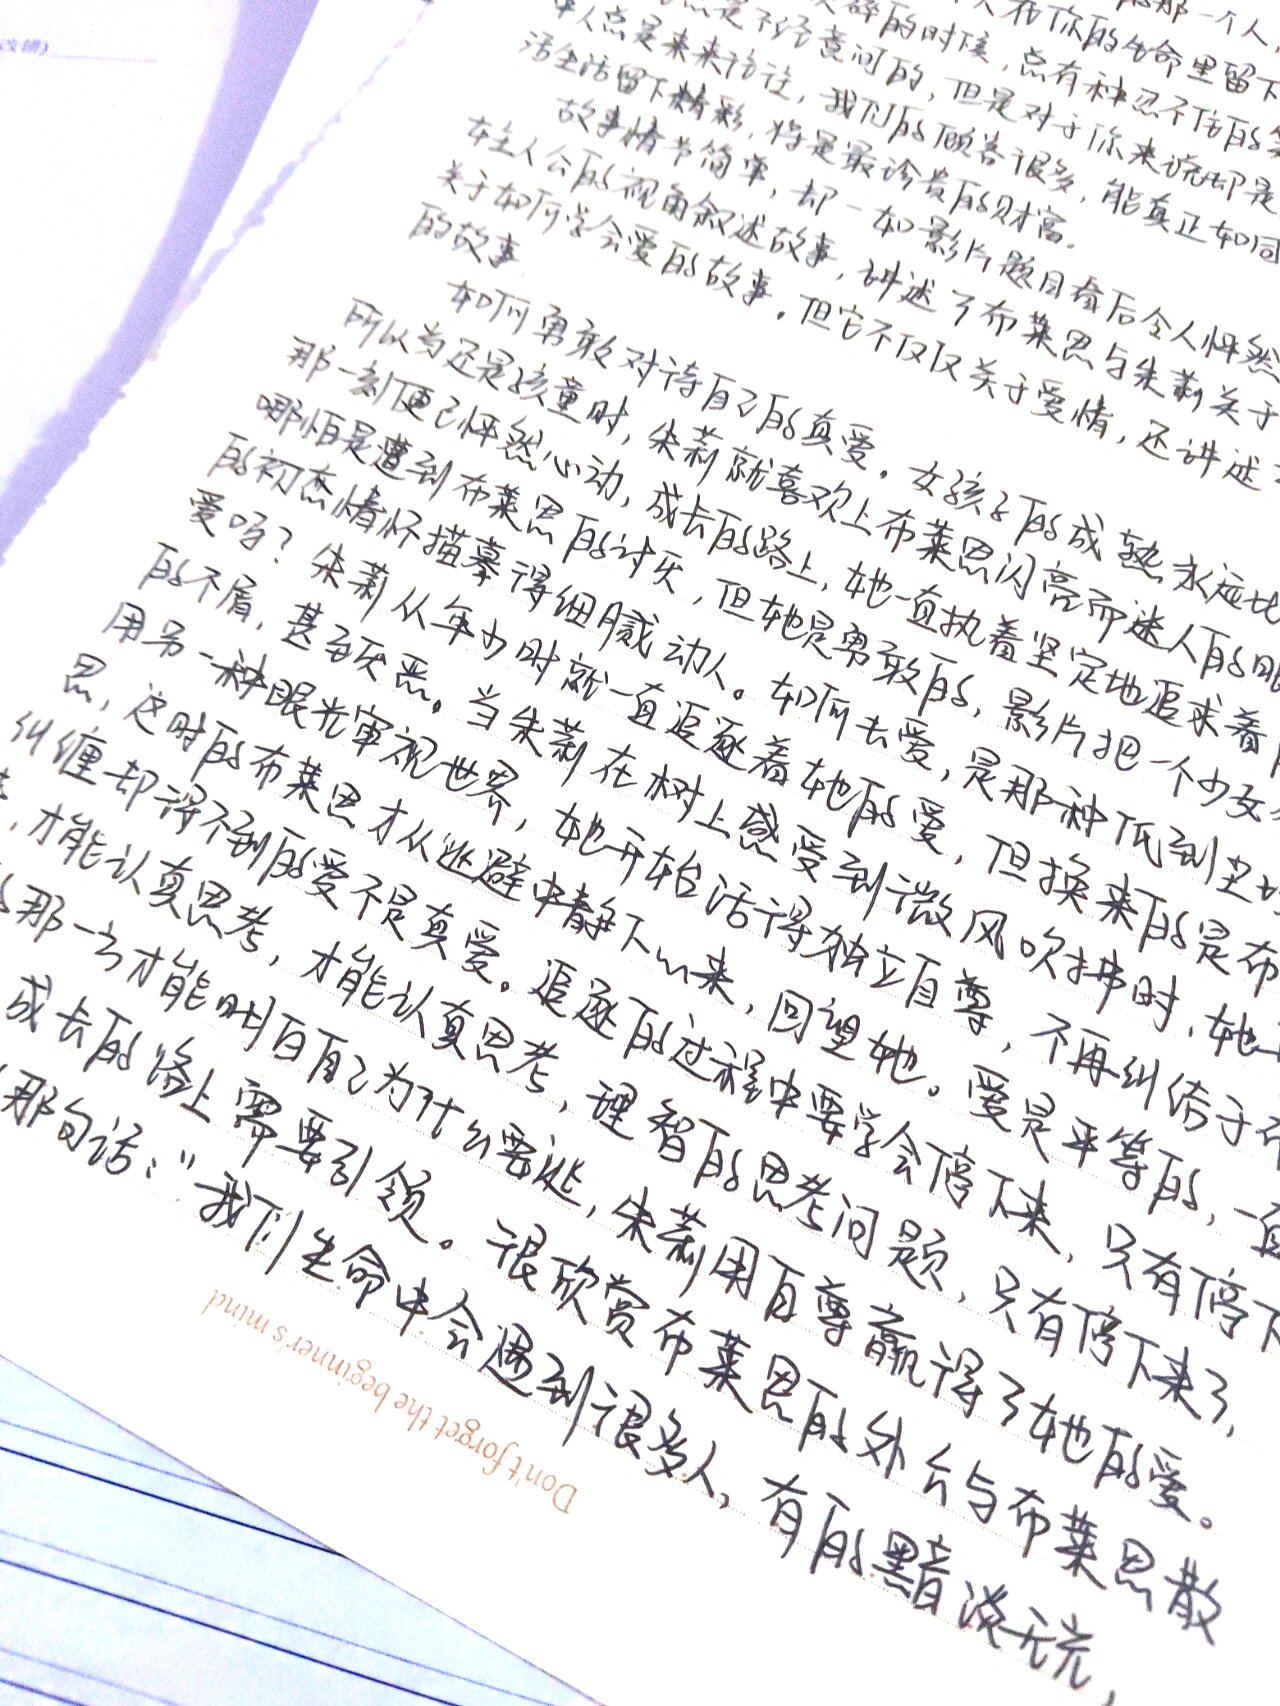 改错)
的那一个人,
人在你的生命里留下
的时候,总有种忍不住的
是不经意间的,但是对于你来说却是
人总是来来往往,我们的顾客很多,能真正如同
活生活留下精彩,将是最珍贵的财富。
故事情节简单,却一如影片题目看后令人怦然
在主人公的视角叙述故事,讲述了布莱恩与朱莉关于
关于如何学会爱的故事。但它不仅仅关于爱情,还讲述
的故事
如何勇敢对待自己的真爱。女孩子的成熟永远比
所以当还是孩童时,朱莉就喜欢上布莱恩闪亮而迷人的眼
那一刻便已怦然心动,成长的路上,她一直执着坚定地追求着
哪怕是遭到布莱恩的讨厌,但她是勇敢的,影片把一个少女
的初恋情怀描摹得细腻动人。如何去爱,是那种低到尘
爱吗?朱莉从年少时就一直追逐着她的爱,但换来的是布
的不屑,甚至厌恶。当朱莉在树上感受到微风吹拂时,她
用另一种眼光审视世界,她开始活得独立自尊,不再纠结于
恩,这时的布莱恩才从逃避中静下心来,回望她。爱是平等的,一直
纠缠却得不到的爱不是真爱。追逐的过程中要学会停下来,只有停下
,才能认真思考,才能认真思考,理智的思考问题,只有停下来了,
那一方才能明白自己为什么要逃,朱莉用自尊赢得了她的爱。
成长的路上需要引领。很欣赏布莱恩的外公与布莱恩散
那句话:"我们生命中会遇到很多人,有的黯淡无光,
Don't forget the beginner's mind